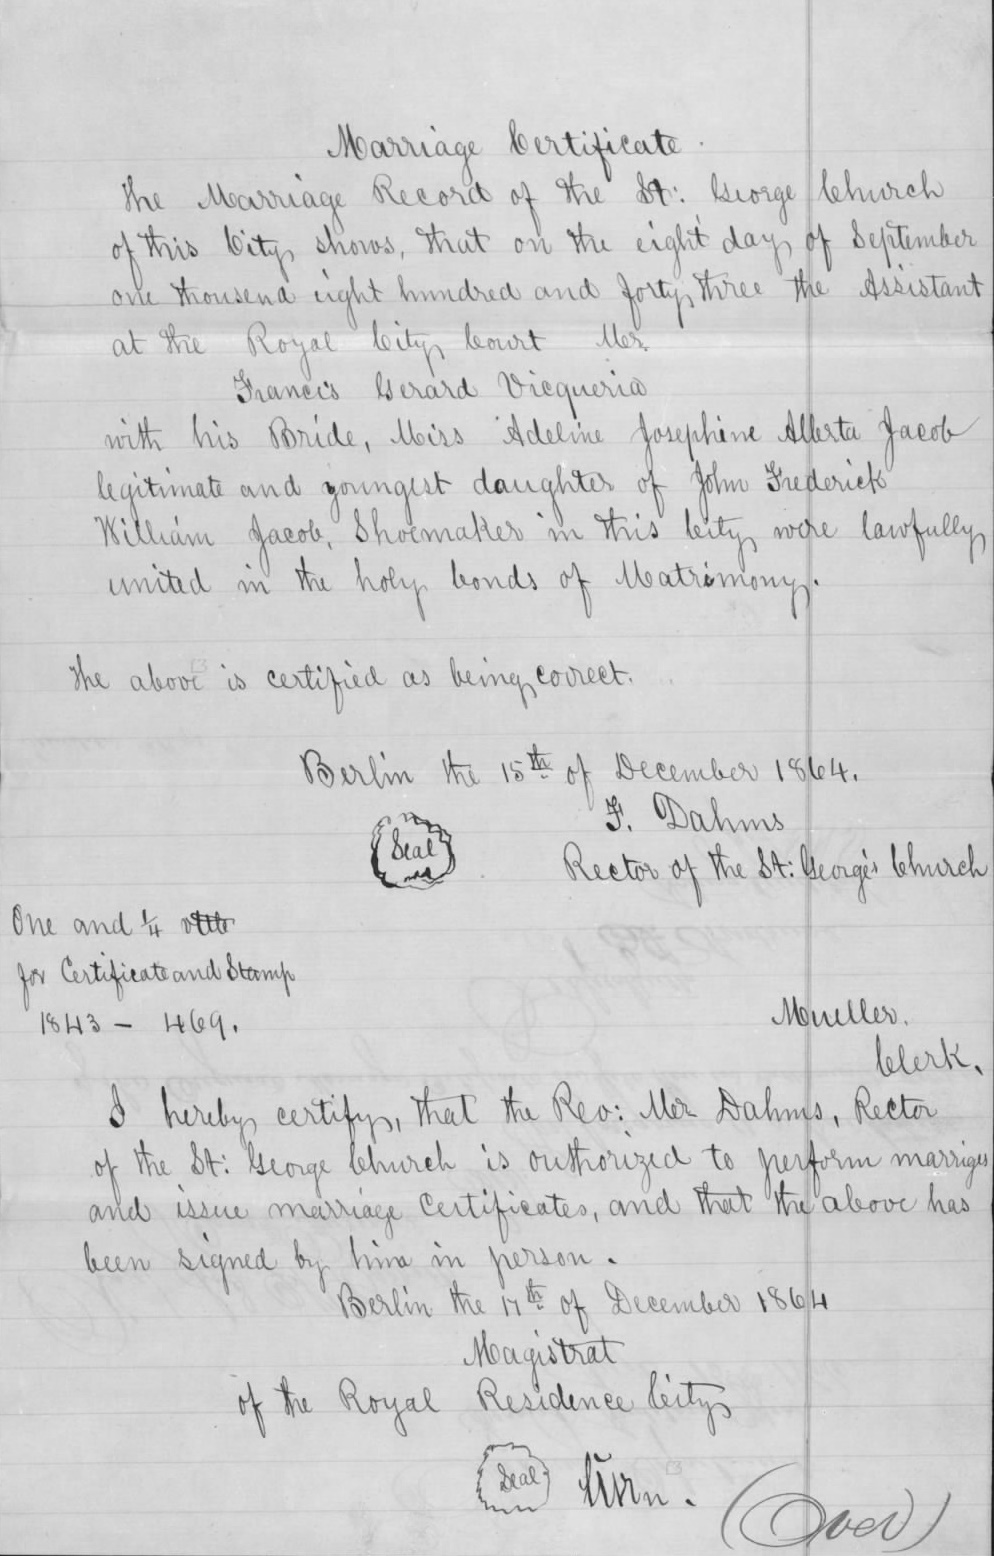 Marriage Certificate.
The Marriage Record of the St: George Church
of this City shows, that on the eight day of September
one thousend eight hundred and forty three the Assistant
at the Royal City Court Mr.
Francis Gerard Vicqueria
with his Bride, Miss Adeline Josephine Alberta Jacob
legitimate and youngest daughter of John Frederick
William Jacob, Shoemaker in this City were lawfully
united in the holy bonds of Matrimony.
The above is certified as being correct.
Berlin the 15th of December 1864.
F. Dahms
Seal
Rector of the St: George's Church
One and 1/4
for Certificate and Stamp
1843 - 469.
Mueller.
Clerk.
I hereby certify, that the Rev: Mr Dahms, Rector
of the St: George Church is authorized to perform marriges
and issue marriage Certificates, and that the above has
been signed by him in person.
Berlin the 17th of December 1864
Magistrat
of the Royal Residence City
Seal
(Over)